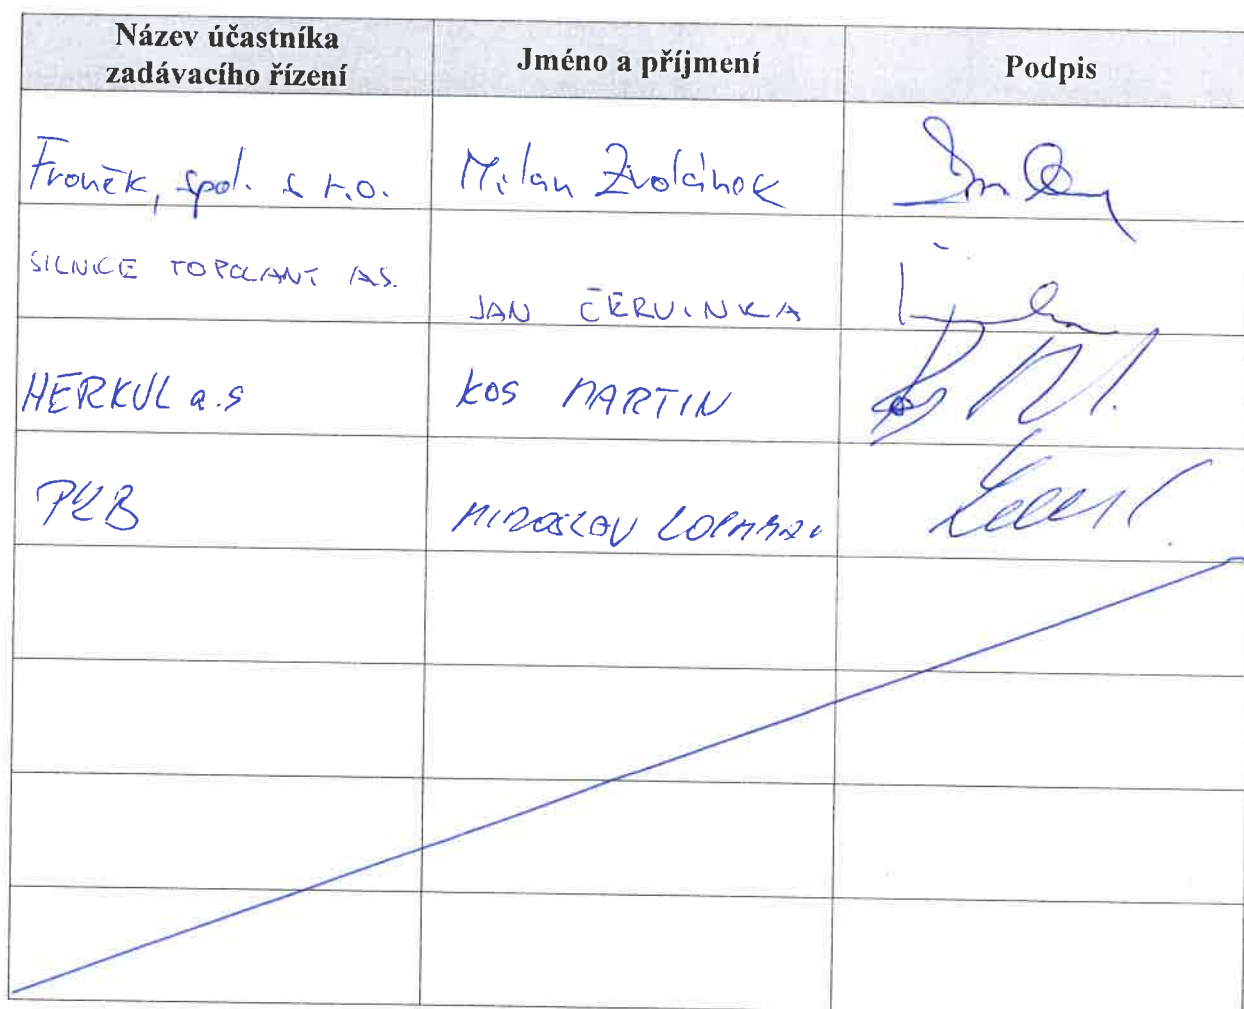 Název účastníka
zadávacího řízení
Jméno a příjmení
Podpis
Froněk, spol. s r.o.
Milan Zvolánek
SILNICE TOPOLANY AS.
JAN ČERVINKA
HERKUL a.s
KOS MARTIN
MIROSLAV